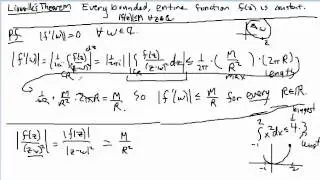 Liouville's Theorem Every bounded, entire function f(z) is constant.
|f(z)| ≤ M ∀ z ∈ ℂ
Pf. |f'(w)| = 0 ∀ w ∈ ℂ.
|f'(w)| = |1/2πi ∫ f(z)/(z-w)² dz| = 1/2π |∫ f(z)/(z-w)² dz| ≤ 1/2π · (M/R²) · (2πR)
C_R C_R max length
1/2π · M/R² · 2πR = M/R. So |f'(w)| ≤ M/R for every R ∈ ℝ
|f(z)/(z-w)²| = |f(z)|/|z-w|² ≤ M/R²
∫ x² dx ≤ 4 · 3
-1
biggest
-1